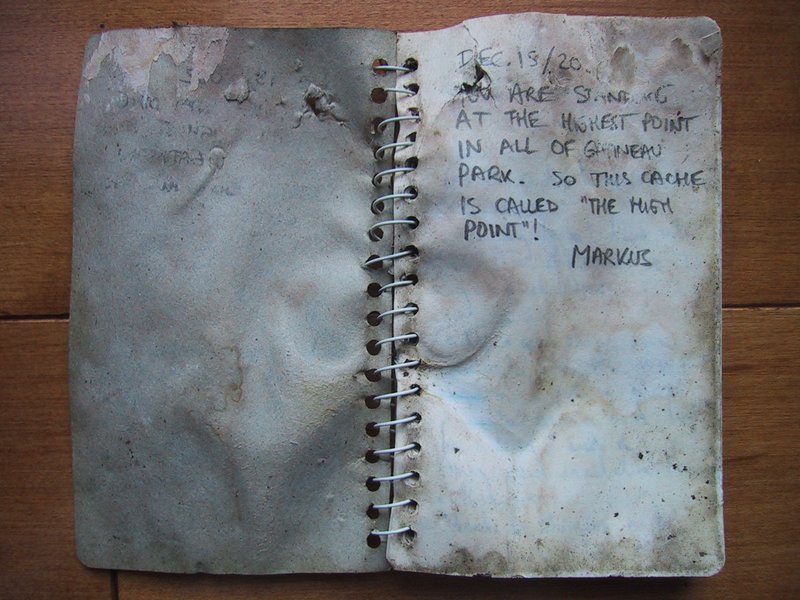 DEC. 15/20
YOU ARE STANDING
AT THE HIGHEST POINT
IN ALL OF GATINEAU
PARK. SO THIS CACHE
IS CALLED "THE HIGH
POINT"!
MARKUS